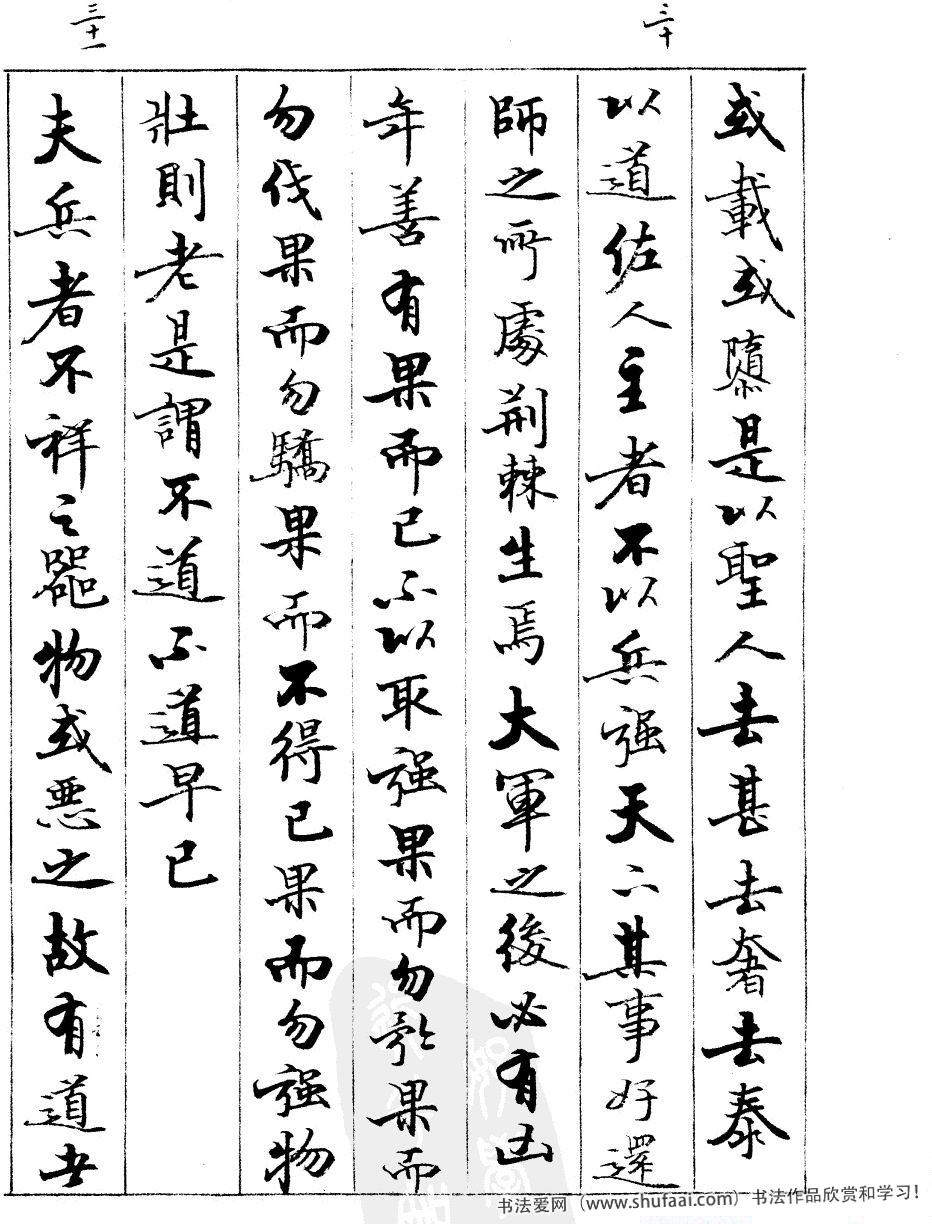 三十
三十一
或載或隳是以聖人去甚去奢去泰
以道佐人主者不以兵强天下其事好還
師之所處荆棘生焉大軍之後必有凶
年善有果而已不以取强果而勿矜果而
勿伐果而勿驕果而不得已果而勿强物
壯則老是謂不道不道早已
夫兵者不祥之器物或惡之故有道者
书法爱网（www.shufaai.com）书法作品欣赏和学习！